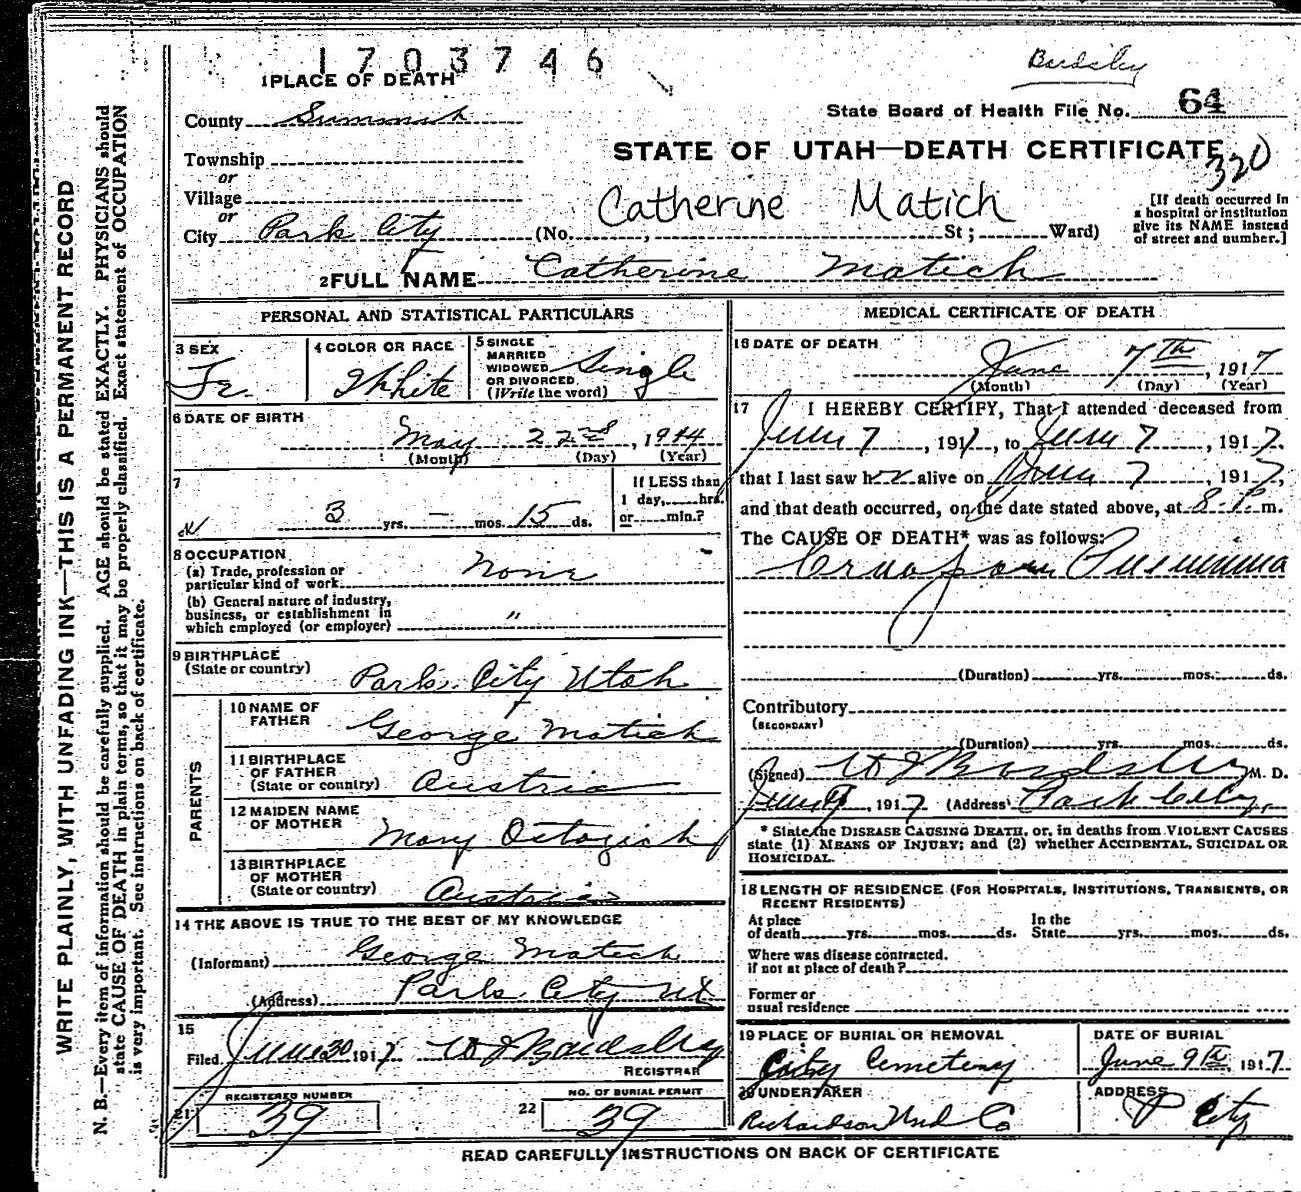 1703746
Bardsley
1 PLACE OF DEATH
State Board of Health File No. 64
County Summit
STATE OF UTAH—DEATH CERTIFICATE
320
Township
or
Village
or
City Park City (No. , St ; Ward)
Catherine Matich
[If death occurred in
a hospital or institution
give its NAME instead
of street and number.]
2 FULL NAME Catherine Matich
PERSONAL AND STATISTICAL PARTICULARS
3 SEX
Fe.
4 COLOR OR RACE
White
5 SINGLE
MARRIED
WIDOWED
OR DIVORCED.
(Write the word)
Single
6 DATE OF BIRTH
May 22nd, 1914
(Month) (Day) (Year)
7
3 yrs. – mos. 15 ds.
If LESS than
1 day, hrs.
or min.?
8 OCCUPATION
(a) Trade, profession or
particular kind of work None
(b) General nature of industry,
business, or establishment in
which employed (or employer) "
9 BIRTHPLACE
(State or country)
Park City Utah
PARENTS
10 NAME OF
FATHER
George Matich
11 BIRTHPLACE
OF FATHER
(State or country)
Austria
12 MAIDEN NAME
OF MOTHER
Mary
13 BIRTHPLACE
OF MOTHER
(State or country)
Austria
14 THE ABOVE IS TRUE TO THE BEST OF MY KNOWLEDGE
(Informant) George Matich
(Address) Park City Ut
15
Filed June 30 1917 W J Bardsley
REGISTRAR
REGISTERED NUMBER
21 39
NO. OF BURIAL PERMIT
22 39
MEDICAL CERTIFICATE OF DEATH
16 DATE OF DEATH
June 7th, 1917
(Month) (Day) (Year)
17 I HEREBY CERTIFY, That I attended deceased from
June 7, 1917, to June 7, 1917.
that I last saw her alive on June 7, 1917,
and that death occurred, on the date stated above, at 8 P. m.
The CAUSE OF DEATH* was as follows:
Croupous Pneumonia
(Duration) yrs. mos. ds.
Contributory
(SECONDARY)
(Duration) yrs. mos. ds.
(Signed) W J Bardsley M. D.
June 9, 1917 (Address) Park City,
* State the DISEASE CAUSING DEATH, or, in deaths from VIOLENT CAUSES
state (1) MEANS OF INJURY; and (2) whether ACCIDENTAL, SUICIDAL OR
HOMICIDAL.
18 LENGTH OF RESIDENCE (FOR HOSPITALS, INSTITUTIONS, TRANSIENTS, OR
RECENT RESIDENTS)
At place
of death yrs. mos. ds.
In the
State yrs. mos. ds.
Where was disease contracted.
if not at place of death?
Former or
usual residence
19 PLACE OF BURIAL OR REMOVAL
City Cemetery
DATE OF BURIAL
June 9th, 1917
20 UNDERTAKER
Richardson Und Co
ADDRESS
P City
READ CAREFULLY INSTRUCTIONS ON BACK OF CERTIFICATE
WRITE PLAINLY, WITH UNFADING INK—THIS IS A PERMANENT RECORD
N. B.—Every item of information should be carefully supplied. AGE should be stated EXACTLY. PHYSICIANS should
state CAUSE OF DEATH in plain terms, so that it may be properly classified. Exact statement of OCCUPATION
is very important. See instructions on back of certificate.